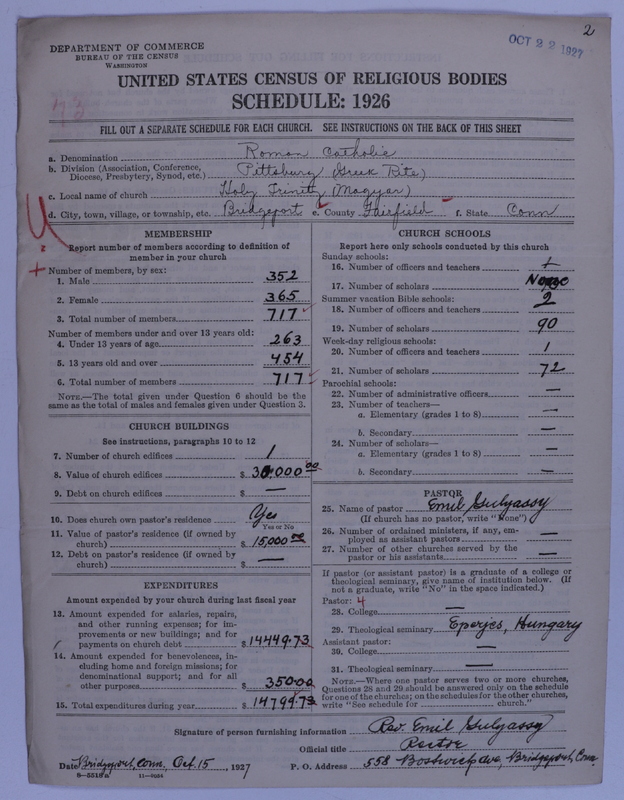 2
OCT 22 1927
DEPARTMENT OF COMMERCE
BUREAU OF THE CENSUS
WASHINGTON
UNITED STATES CENSUS OF RELIGIOUS BODIES
SCHEDULE: 1926
FILL OUT A SEPARATE SCHEDULE FOR EACH CHURCH. SEE INSTRUCTIONS ON THE BACK OF THIS SHEET
a. Denomination Roman Catholic
b. Division (Association, Conference, Diocese, Presbytery, Synod, etc.) Pittsburg (Greek Rite)
c. Local name of church Holy Trinity (Magyar)
d. City, town, village, or township, etc. Bridgeport e. County Fairfield f. State Conn
MEMBERSHIP
Report number of members according to definition of
member in your church
Number of members, by sex:
1. Male 352
2. Female 365
3. Total number of members 717
Number of members under and over 13 years old:
4. Under 13 years of age 263
5. 13 years old and over 454
6. Total number of members 717
NOTE.—The total given under Question 6 should be
same as the total of males and females given under Question 3.
CHURCH BUILDINGS
See instructions, paragraphs 10 to 12
7. Number of church edifices 1
8. Value of church edifices $ 30,000 00
9. Debt on church edifices $ —
10. Does church own pastor's residence Yes
Yes or No
11. Value of pastor's residence (if owned by
church) $ 15,000 00
12. Debt on pastor's residence (if owned by
church) $ —
EXPENDITURES
Amount expended by your church during last fiscal year
13. Amount expended for salaries, repairs,
and other running expenses; for im-
provements or new buildings; and for
payments on church debt $ 14449.73
14. Amount expended for benevolences, in-
cluding home and foreign missions; for
denominational support; and for all
other purposes $ 350.00
15. Total expenditures during year $ 14799.73
CHURCH SCHOOLS
Report here only schools conducted by this church
Sunday schools:
16. Number of officers and teachers 1
17. Number of scholars None
Summer vacation Bible schools:
18. Number of officers and teachers 2
19. Number of scholars 90
Week-day religious schools:
20. Number of officers and teachers 1
21. Number of scholars 72
Parochial schools:
22. Number of administrative officers —
23. Number of teachers—
a. Elementary (grades 1 to 8) —
b. Secondary —
24. Number of scholars—
a. Elementary (grades 1 to 8) —
b. Secondary —
PASTOR
25. Name of pastor Emil Gulyassy
(If church has no pastor, write "None")
26. Number of ordained ministers, if any, em-
ployed as assistant pastors —
27. Number of other churches served by the
pastor or his assistants —
If pastor (or assistant pastor) is a graduate of a college or
theological seminary, give name of institution below. (If
not a graduate, write "No" in the space indicated.)
Pastor: 4
28. College —
29. Theological seminary Eperjes, Hungary
Assistant pastor:
30. College —
31. Theological seminary —
NOTE.—Where one pastor serves two or more churches,
Questions 28 and 29 should be answered only on the schedule
for one of the churches; on the schedules for the other churches,
write "See schedule for church."
Signature of person furnishing information Rev. Emil Gulyassy
Official title Rector
Date Bridgeport, Conn, Oct. 15, 1927 P. O. Address 558 Bostwick Ave, Bridgeport, Conn
8—5518a 11—9954